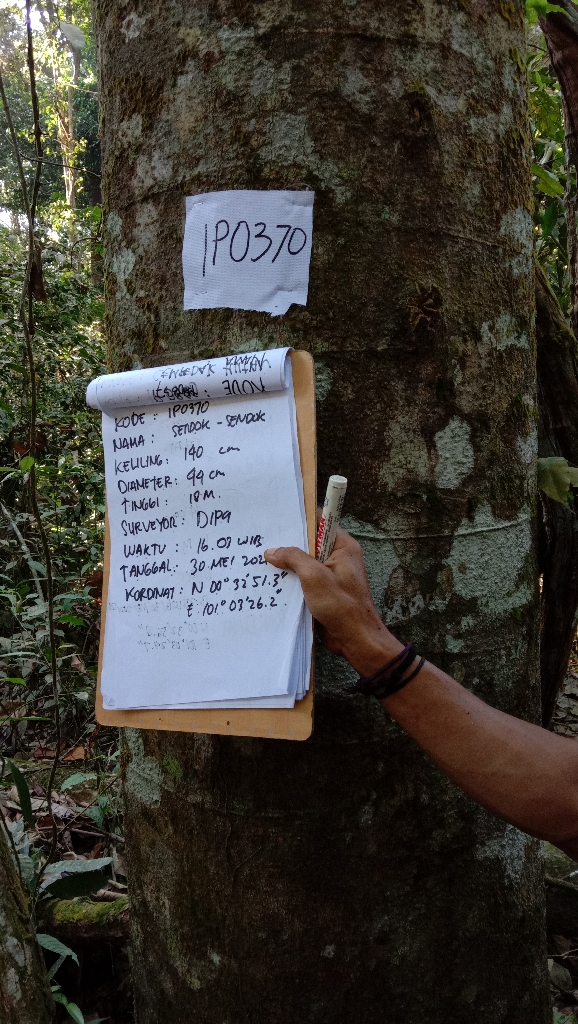 IP0370
KODE : IP0370
NAMA : SENDOK - SENDOK
KELILING : 140 cm
DIAMETER : 44 cm
TINGGI : 18 M.
SURVEYOR : DIPA
WAKTU : 16.03 WIB
TANGGAL : 30 MEI
KORDINAT : N 00° 32' 51.3"
E : 101° 03' 26.2"